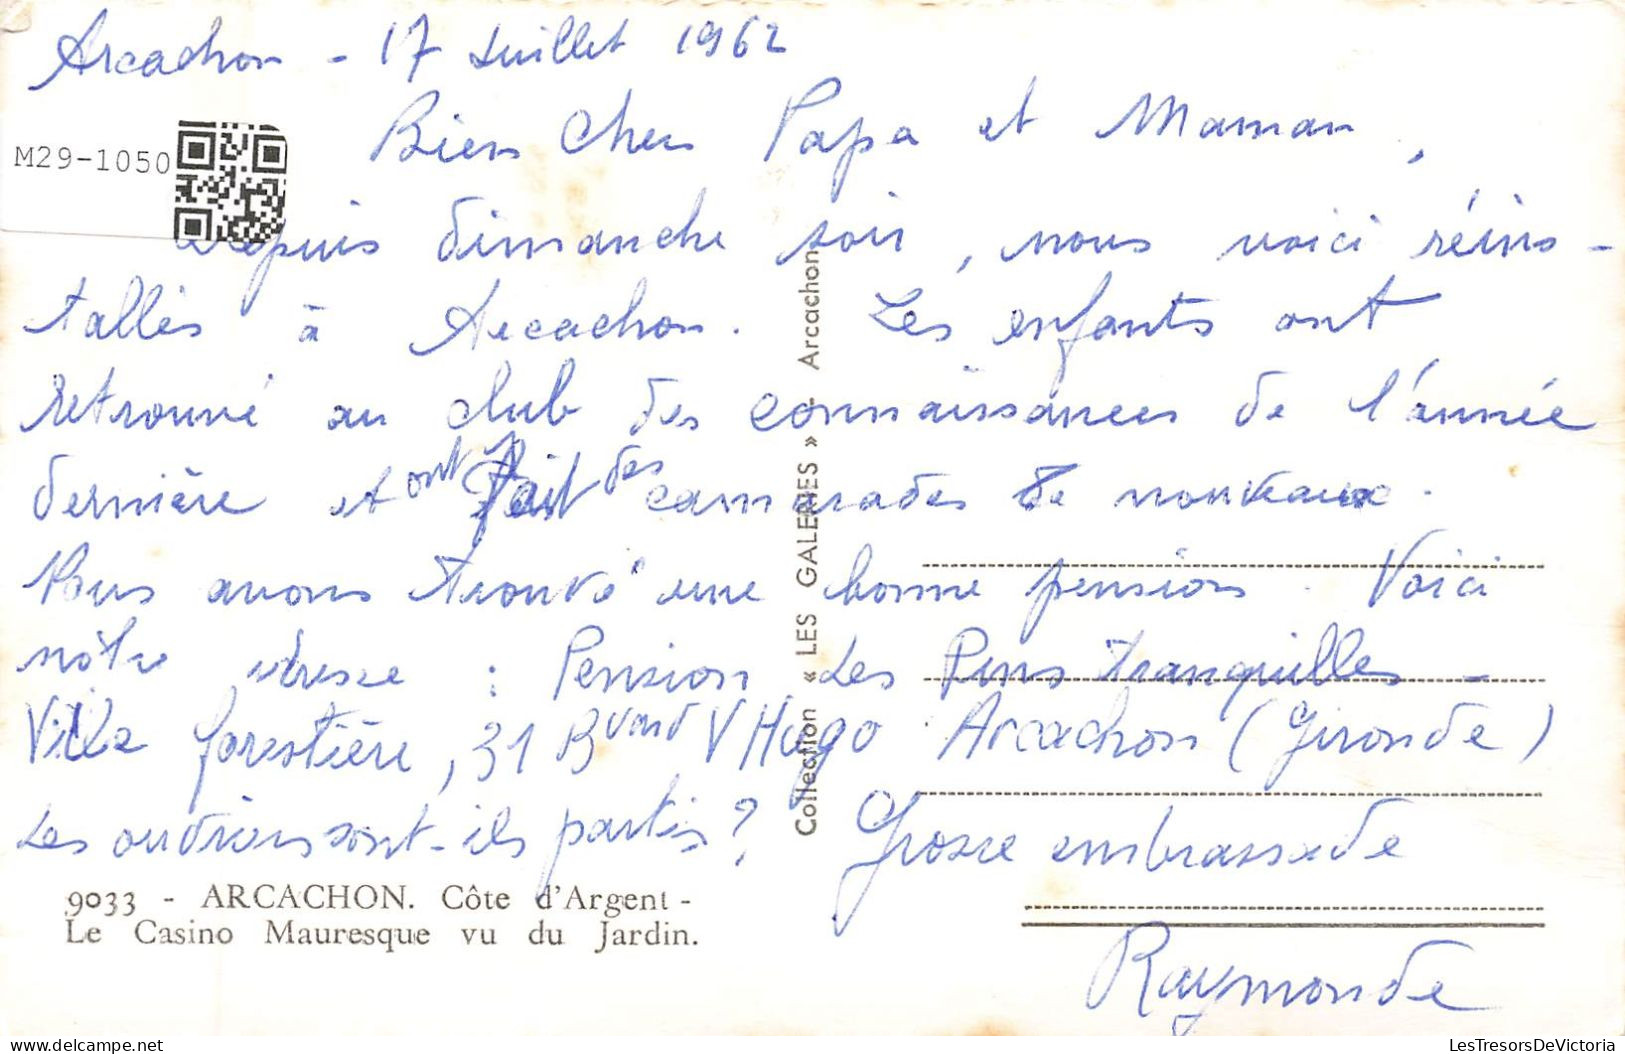 Arcachon - 17 Juillet 1962
M29-1050
Bien Chers Papa et Maman,
Depuis dimanche soir, nous voici réins-
tallés à Arcachon. Les enfants ont
retrouvé au club des connaissances de l'année
dernière et ont fait des camarades de nouveaux.
Nous avons trouvé une bonne pension. Voici
nôtre adresse : Pension Les Pins tranquilles -
Ville forestière, 31 Bvard V Hugo Arcachon (Gironde)
Les sont-ils partis? Grosse embrassade
Raymonde
9033 - ARCACHON. Côte d'Argent -
Le Casino Mauresque vu du Jardin.
Collection « LES GALERIES » - Arcachon
LesTresorsDeVictoria
https://www.delcampe.net